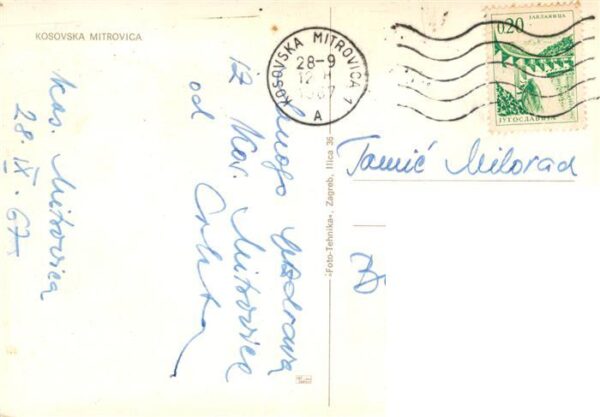 KOSOVSKA MITROVICA
KOSOVSKA MITROVICA 1
28-9
12 H
1967
A
0.20
ЈАБЛАНИЦА
ЈУГОСЛАВИЈА
Kos. Mitrovica
28. IX. 67
Mnogo pozdrava
iz Kos. Mitrovice
od
Tomić Milorad
»Foto-Tehnika«, Zagreb, Ilica 36